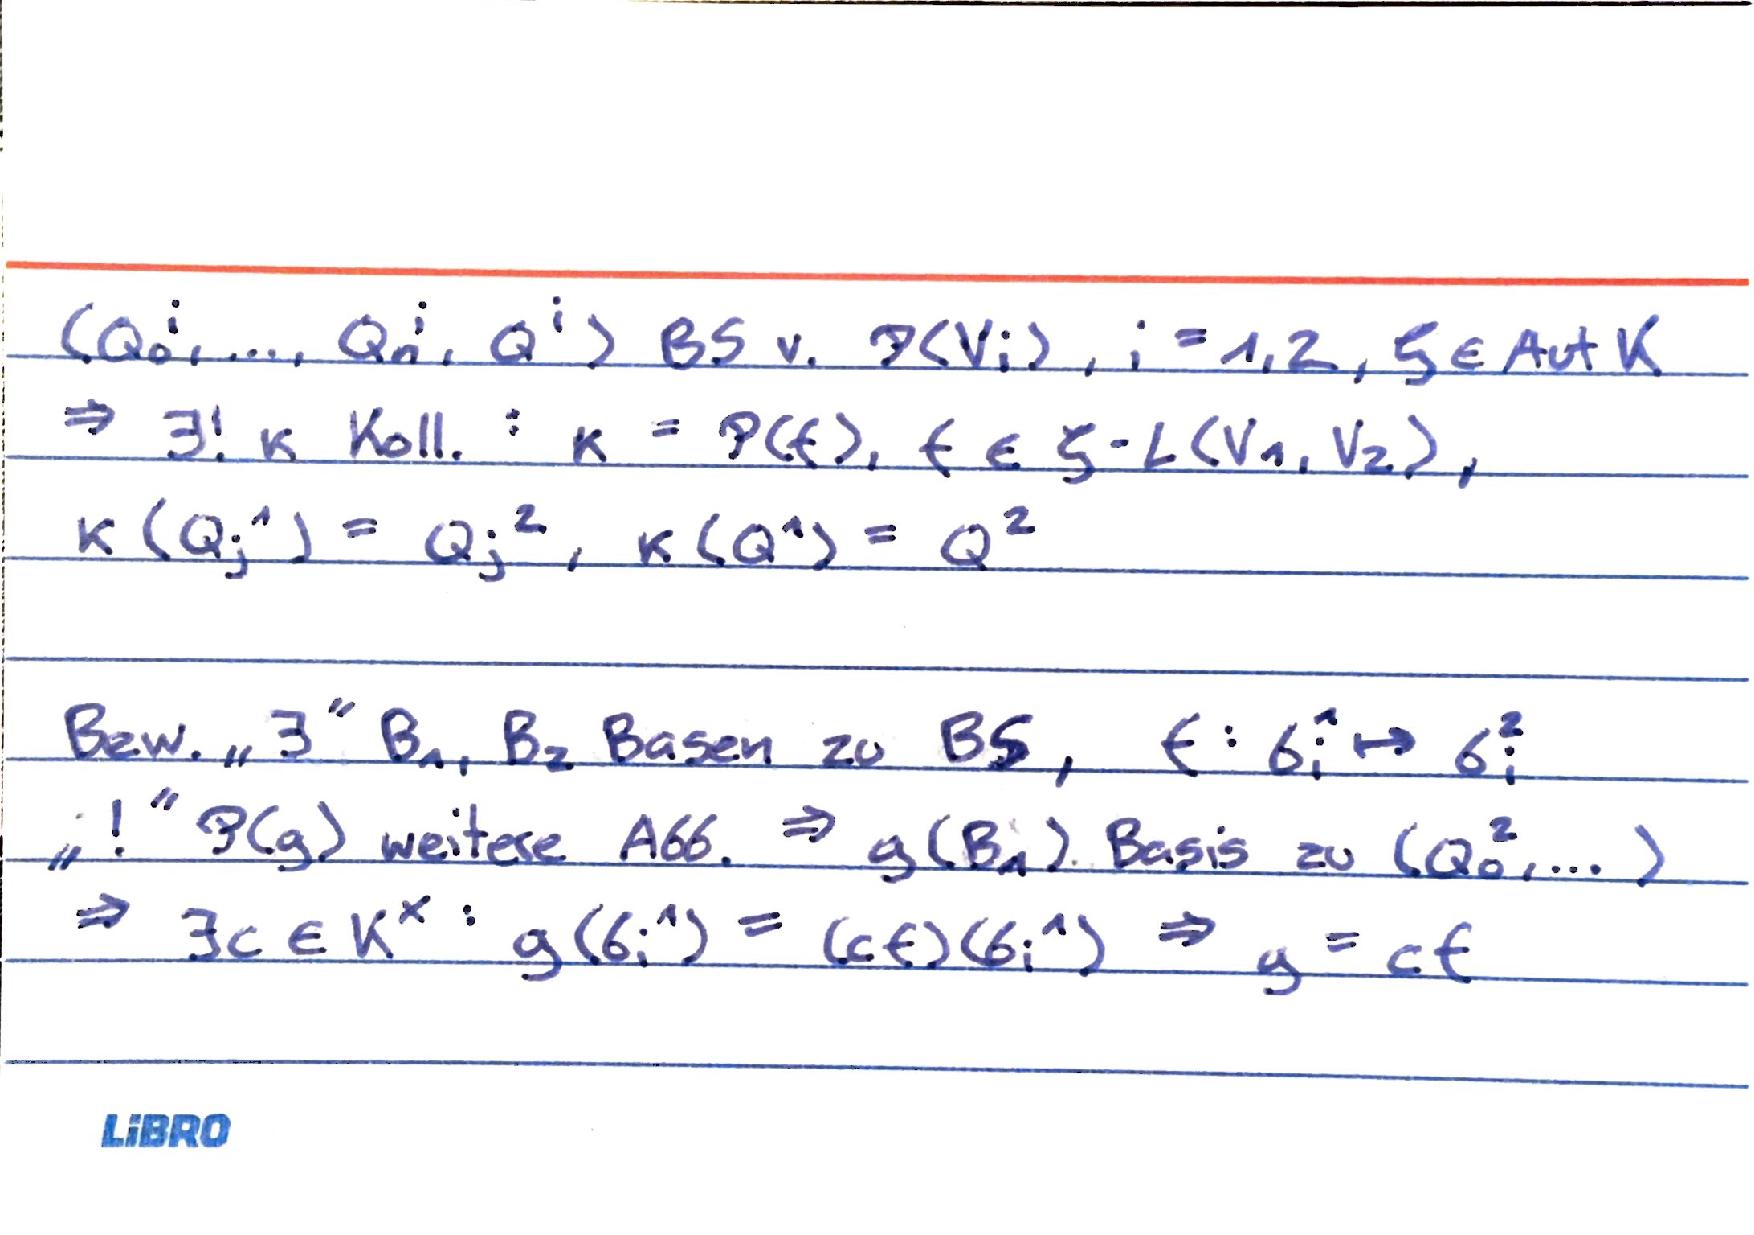 (Q₀ⁱ, ..., Qₙⁱ, Qⁱ) BS v. P(Vᵢ), i = 1,2, ζ ∈ Aut K
⇒ ∃! κ Koll. : κ = P(f), f ∈ ζ-L(V₁, V₂),
κ(Qⱼ¹) = Qⱼ², κ(Q¹) = Q²
Bew. „∃“ B₁, B₂ Basen zu BS, f : bᵢ¹ ↦ bᵢ²
„!“ P(g) weitere Abb. ⇒ g(B₁) Basis zu (Q₀², ... )
⇒ ∃c ∈ Kˣ : g(bᵢ¹) = (cf)(bᵢ¹) ⇒ g = cf
LiBRO